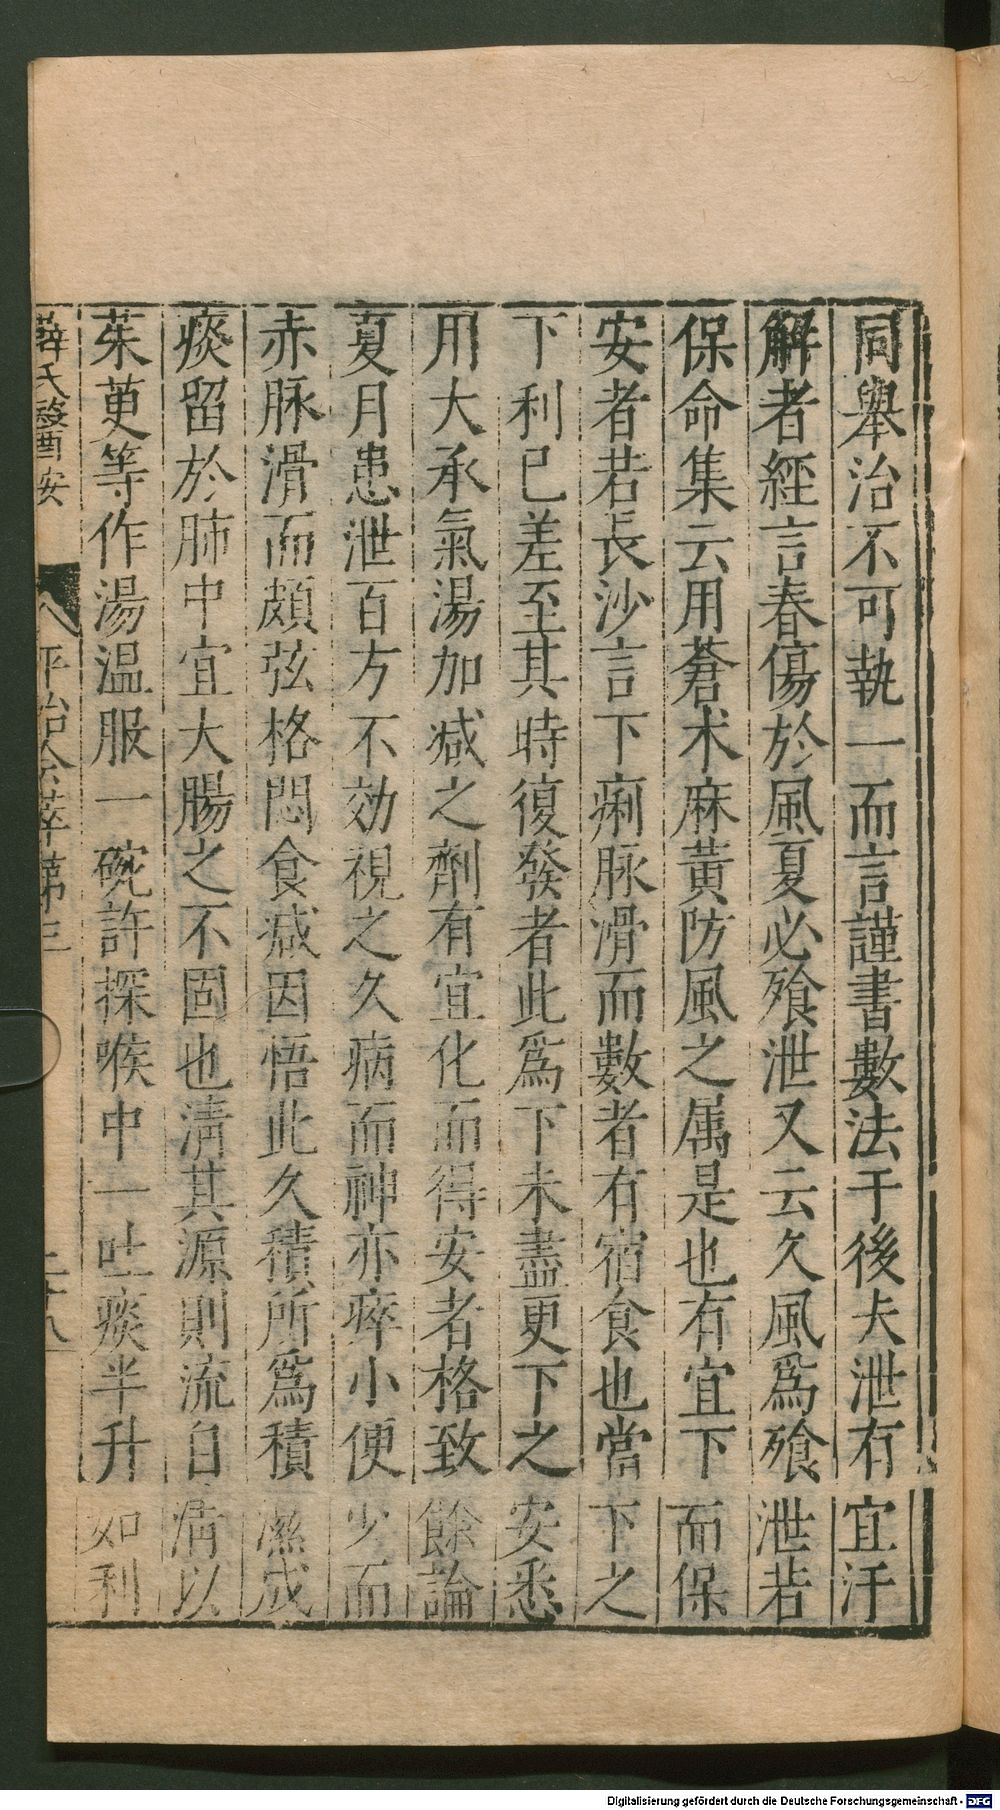 同舉治不可執一而言謹書數法于後夫泄有宜汗
解者經言春傷於風夏必飱泄又云久風爲飱泄若
保命集云用蒼术麻黃防風之属是也有宜下而保
安者若長沙言下痢脉滑而數者有宿食也當下之
下利已差至其時復發者此爲下未盡更下之安悉
用大承氣湯加减之劑有宜化而得安者格致餘論
夏月患泄百方不効視之久病而神亦瘁小便少而
赤脉滑而頗弦格悶食减因悟此久積所爲積濕成
痰留於肺中宜大腸之不固也淸其源則流自淸以
茱萸等作湯温服一碗許探喉中一吐痰半升如利
薛氏醫安 平治會萃第三 二十八
Digitalisierung gefördert durch die Deutsche Forschungsgemeinschaft - DFG